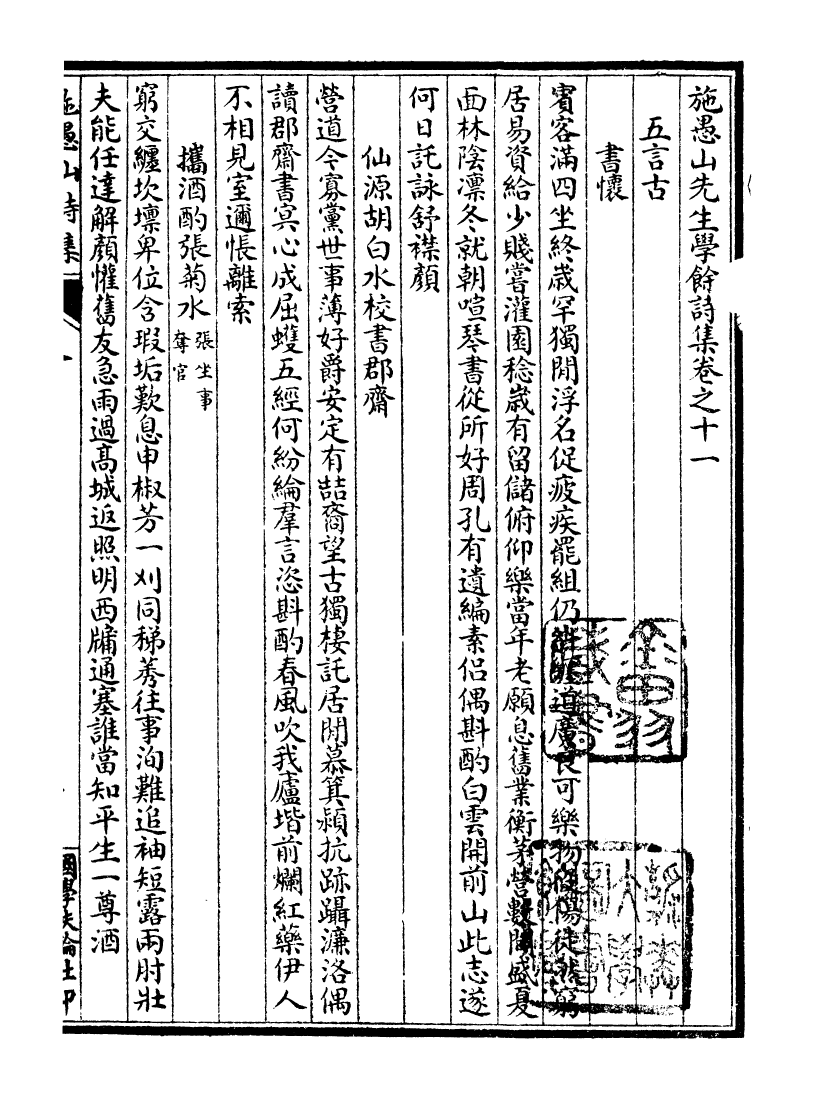 施愚山先生學餘詩集卷之十一
五言古
書懷
賓客滿四坐終歳罕獨閒浮名促疲疾罷組仍迫廣良可樂物傷徒窮
居易資給少賤嘗灌園稔歳有留儲俯仰樂當年老願息舊業衡茅營數間盛夏
面林陰凛冬就朝喧琴書從所好周孔有遺編素侣偶斟酌白雲開前山此志遂
何日託詠舒襟顏
仙源胡白水校書郡齋
營道今寡黨世事薄好爵安定有喆裔望古獨棲託居閒慕箕潁抗跡躡濂洛偶
讀郡齋書㝠心成屈蠖五經何紛綸羣言恣斟酌春風吹我廬堦前爛紅藥伊人
不相見室邇悵離索
攜酒酌張菊水張坐事奪官
窮交纏坎壈卑位含瑕垢歎息申椒芳一刈同稊莠往事洵難追袖短露兩肘壯
夫能任達解顏懽舊友急雨過髙城返照明西牗通塞誰當知平生一尊酒
施愚山詩集
一
國學扶輪社印